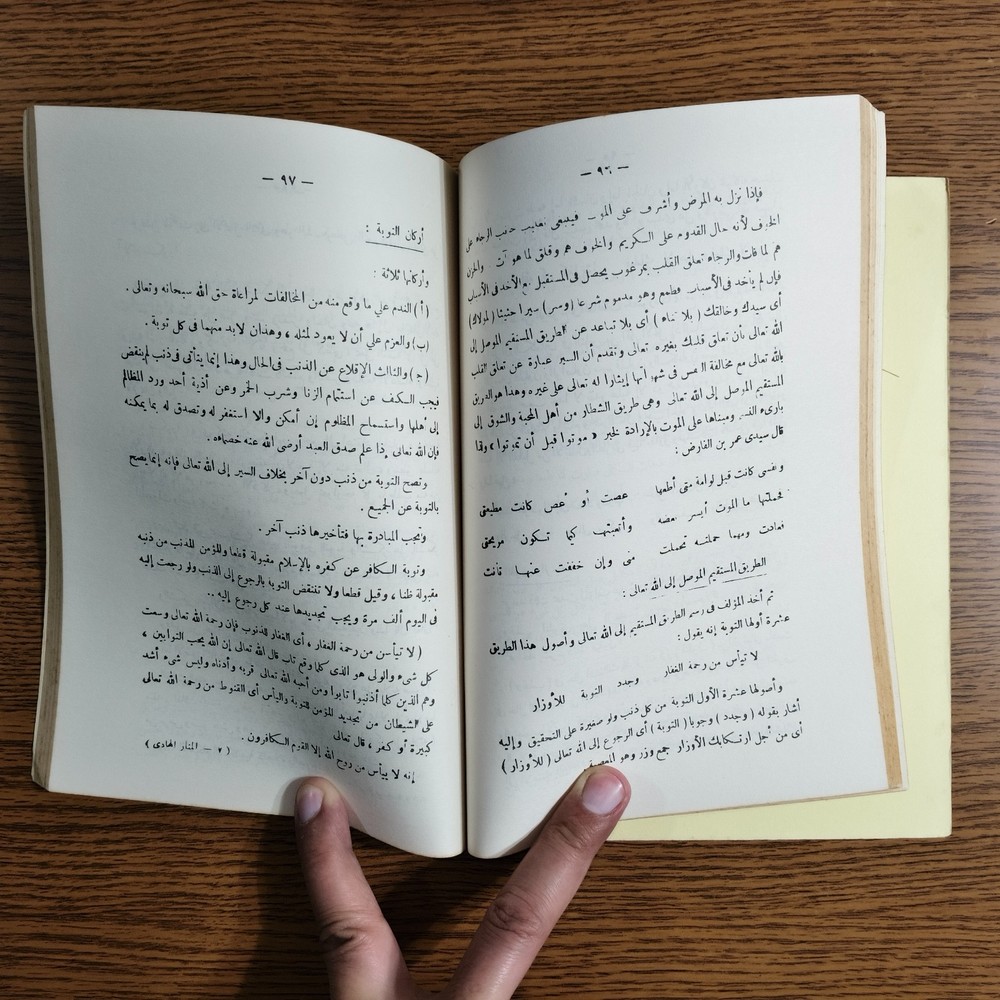 — ٩٦ —
فإذا نزل به المرض وأشرف على فينبغى جانب الرجاء على
الخوف لأنه حال القدوم على الكريم والخوف هم وقلق لما هو آت والحزن
هم لما فات والرجاء تعلق القلب بمرغوب يحصل فى المستقبل مع الأخذ فى الأسباب
فإن لم يأخذ فى الأسباب فطمع وهو مذموم شرعا (وسر) سيرا حثيثا (لمولاك)
أى سيدك وخالقك ( بلا تناء ) أى بلا تباعد عن الطريق المستقيم الموصل إلى
الله تعالى بأن تعلق قلبك بغيره تعالى وتقدم أن السير عبارة عن تعلق القلب
بالله تعالى مع مخالفة النفس فى شهواتها إيثارا له تعالى على غيره وهذا هو الطريق
المستقيم الموصل إلى الله تعالى وهى طريق الشطار من أهل المحبة والشوق إلى
بارىء النسم ومبناها على الموت بالإرادة لخبر « موتوا قبل أن تموتوا » وقا
قال سيدى عمر بن الفارض :
ونفسى كانت قبل لوامة متى أطعها عصت أو أعص كانت مطيعتى
فحملتها ما الموت أيسر بعضه وأتعبتها كيما تكون مريحتى
فعادت ومهما حملته تحملت منى وإن خففت عنها تأذت
الطريق المستقيم الموصل إلى الله تعالى :
ثم أخذ المؤلف فى رسم الطريق المستقيم إلى الله تعالى وأصول هذا الطريق
عشرة أولها التوبة إنه يقول :
لا تيأس من رحمة الغفار وجدد التوبة للأوزار
وأصولها عشرة الأول التوبة من كل ذنب ولو صغيرة على التحقيق وإليه
أشار بقوله ( وجدد ) وجوبا ( التوبة ) أى الرجوع إلى الله تعالى ( للأوزار )
أى من أجل ارتكابك الأوزار جمع وزر وهو المعصية
— ٩٧ —
أركان التوبة :
وأركانها ثلاثة :
( أ ) الندم علي ما وقع منه من المخالفات لمراعاة حق الله سبحانه وتعالى .
(ب) والعزم علي أن لا يعود لمثله ، وهذان لابد منهما فى كل توبة .
(ج) والثالث الإقلاع عن الذنب فى الحال وهذا إنما يتأتى فى ذنب لم ينقض
فيجب الكف عن استتمام الزنا وشرب الخمر وعن أذية أحد ورد المظالم
إلى أهلها واستسماح المظلوم إن أمكن وإلا استغفر له وتصدق له بما يمكنه
فإن الله تعالى إذا علم صدق العبد أرضى الله عنه خصماءه .
وتصح التوبة من ذنب دون آخر بخلاف السير إلى الله تعالى فإنه إنما يصح
بالتوبة عن الجميع .
وتجب المبادرة بها فتأخيرها ذنب آخر .
وتوبة الكافر عن كفره بالإسلام مقبولة قطعا وللمؤمن المذنب من ذنبه
مقبولة ظنا ، وقيل قطعا ولا تنتقض التوبة بالرجوع إلى الذنب ولو رجعت إليه
فى اليوم ألف مرة ويجب تجديدها عند كل رجوع إليه ..
( لا تيأسن من رحمة الغفار ، أى الغفار للذنوب فإن رحمة الله تعالى وسعت
كل شىء والولى هو الذى كلما وقع تاب قال الله تعالى إن الله يحب التوابين ،
وهم الذين كلما أذنبوا تابوا ومن أحبه الله تعالى قربه وأدناه وليس شىء أشد
على الشيطان من تجديد المؤمن للتوبة واليأس أى القنوط من رحمة الله تعالى
كبيرة أو كفر ، قال تعالى
إنه لا ييأس من روح الله إلا القوم الكافرون .
( ٧ — المنار الهادى )